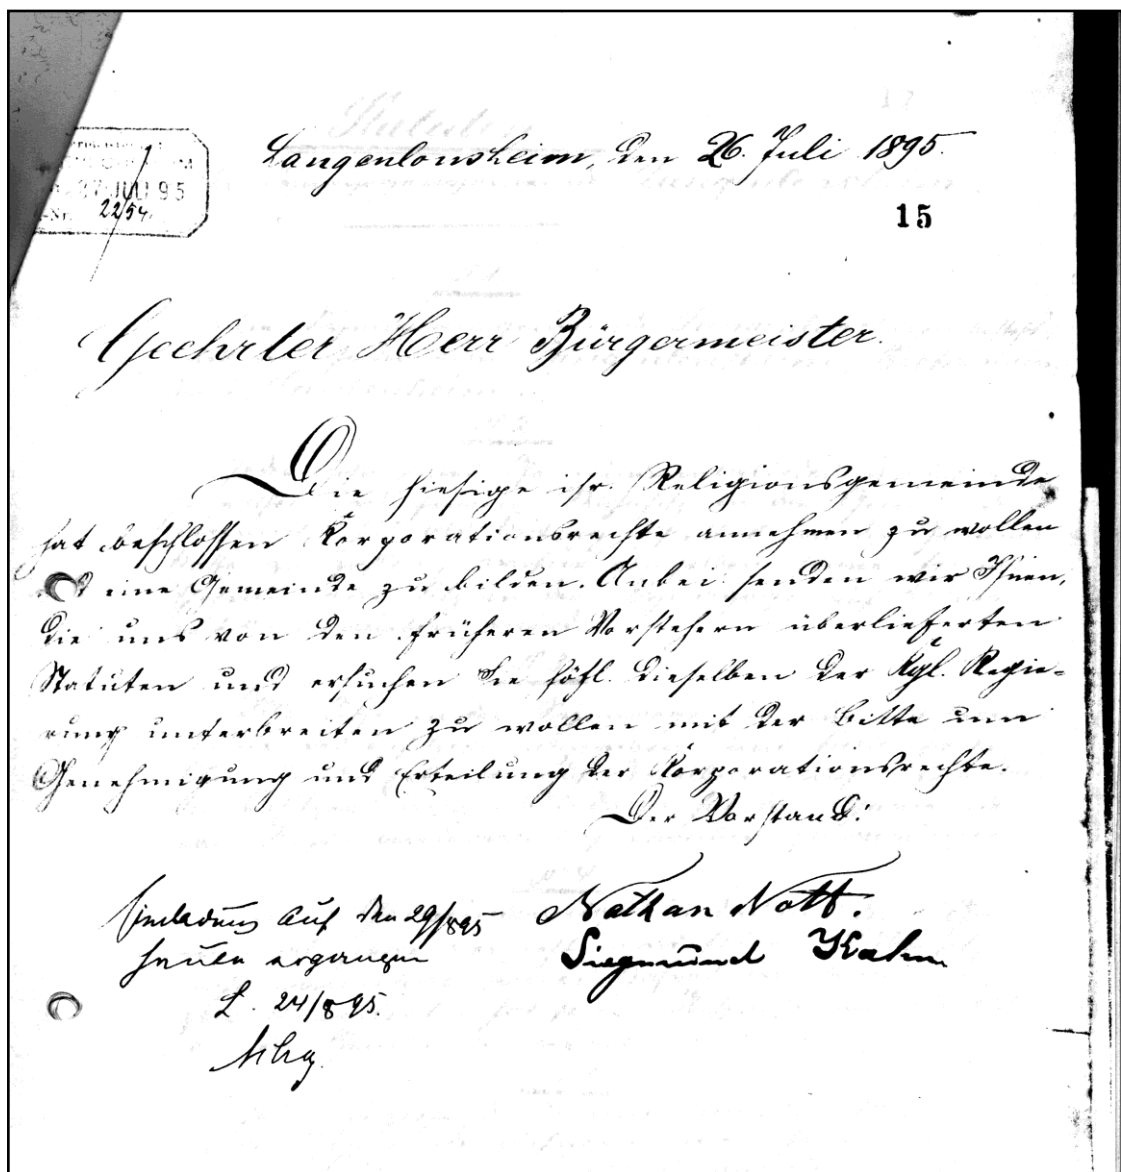 Langenlonsheim, den 26. Juli 1895.
27 JULI 95
2254
15
Geehrter Herr Bürgermeister.
Die hiesige isr. Religionsgemeinde
hat beschlossen Korporationsrechte annehmen zu wollen
eine Gemeinde zu bilden. Anbei senden wir Ihnen,
die uns von den früheren Vorstehern überlieferten
Statuten und ersuchen Sie höfl. dieselben der Kgl. Regie-
rung unterbreiten zu wollen mit der Bitte um
Genehmigung und Erteilung der Korporationsrechte.
Der Vorstand:
Nathan Nott.
Siegmund Kahn
Einladung auf den 29/8 95
heute ergangen
L. 24/8 95.